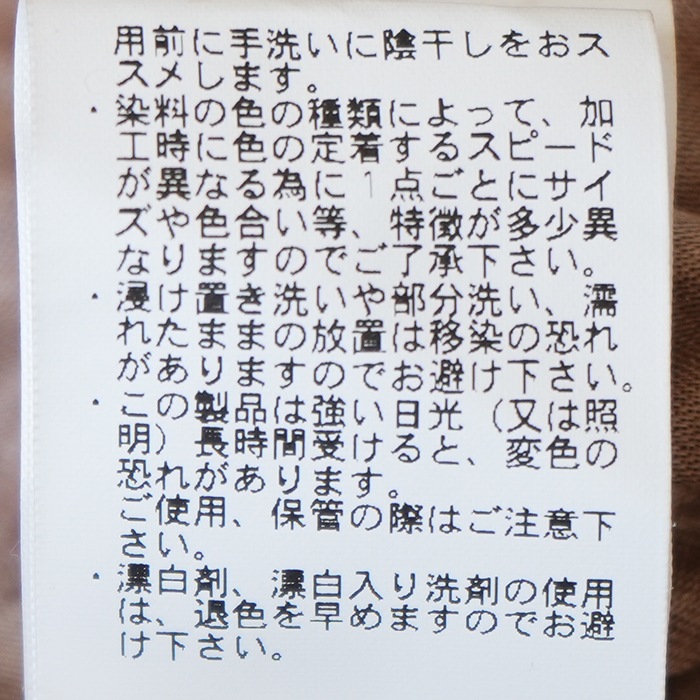 用前に手洗いに陰干しをおス
スメします。
・染料の色の種類によって、加
工時に色の定着するスピード
が異なる為に1点ごとにサイ
ズや色合い等、特徴が多少異
なりますのでご了承下さい。
・浸け置き洗いや部分洗い、濡
れたままの放置は移染の恐れ
がありますのでお避け下さい。
・この製品は強い日光（又は照
明）長時間受けると、変色の
恐れがあります。
ご使用、保管の際はご注意下
さい。
・漂白剤、漂白入り洗剤の使用
は、退色を早めますのでお避
け下さい。